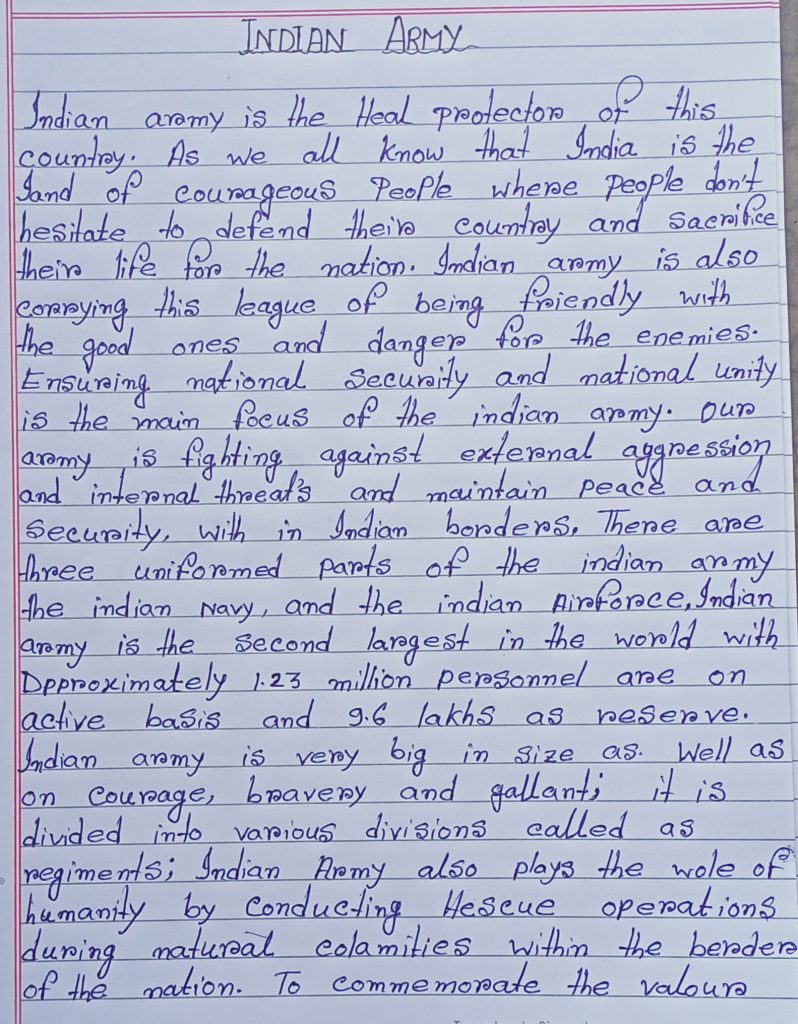 INDIAN ARMY
Indian army is the Heal protector of this
country. As we all know that India is the
Land of courageous People where people don't
hesitate to defend their country and sacrifice
their life for the nation. Indian army is also
corrying this league of being friendly with
the good ones and danger for the enemies.
Ensuring national security and national unity
is the main focus of the indian army. Our
army is fighting against external aggression
and internal threat's and maintain peace and
security, with in Indian borders. There are
three uniformed parts of the indian army
the indian Navy, and the indian Airforce, Indian
army is the second largest in the world with
Dpproximately 1.23 million personnel are on
active basis and 9.6 lakhs as reserve.
Indian army is very big in size as. well as
on courage, bravery and gallant; it is
divided into various divisions called as
regiments; Indian Army also plays the wole of
humanity by conducting Hescue operations
during natural colamities within the berder
of the nation. To commemorate the valour